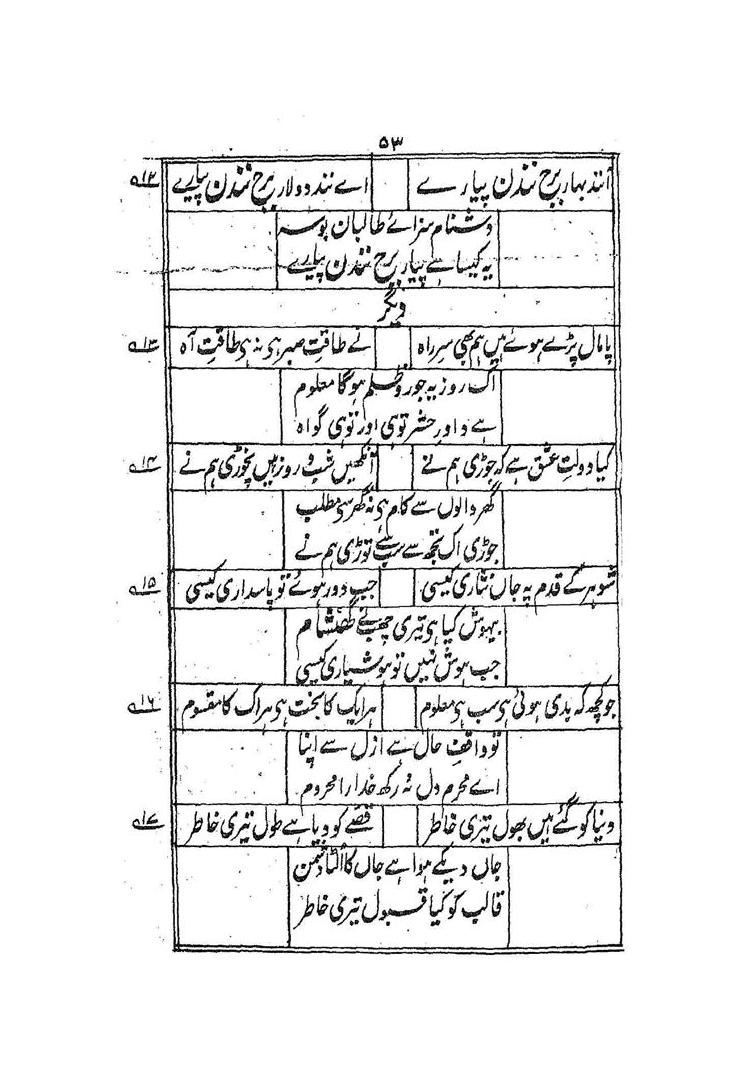 ۵۳
آنند بہار برج نندن پیارے اے نند دولار برج نندن پیارے ۵۱۲
دشنام سزائے طالبان بوسہ
یہ کیسا ہے پیار برج نندن پیارے
دیگر
پامال پڑے ہوئے ہیں ہم بھی سرِ راہ نے طاقتِ صبر ہی نہ ہی طاقتِ آہ ۵۱۳
اک روز یہ جور و ظلم ہوگا معلوم
ہے داورِ حشر توہی اور توہی گواہ
کیا دولتِ عشق ہے کہ جوڑی ہم نے آنکھیں شب و روز ہیں نچوڑی ہم نے ۵۱۴
گھر والوں سے کام ہی نہ گھر سے مطلب
جوڑی اک تجھ سے سب سے توڑی ہم نے
شوہر کے قدم پہ جاں نثاری کیسی جب دور ہوئے تو پاسداری کیسی ۵۱۵
بیہوش کیا ہی تیری چھب نے گھنشام
جب ہوش نہیں تو ہوشیاری کیسی
جو کچھ کہ بدی ہوئی ہی سب ہی معلوم ہر ایک کا بخت ہی ہر اک کا مقسوم ۵۱۶
تو واقفِ حال ہے ازل سے اپنا
اے محرمِ دل نہ رکھ خدارا محروم
دنیا کو گئے ہیں بھول تیری خاطر قصے کو دیا ہے طول تیری خاطر ۵۱۷
جاں دیکے ہوا ہے جاں کا الٹا دشمن
قالب کو کیا قبول تیری خاطر